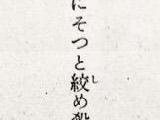 にそつと絞め殺